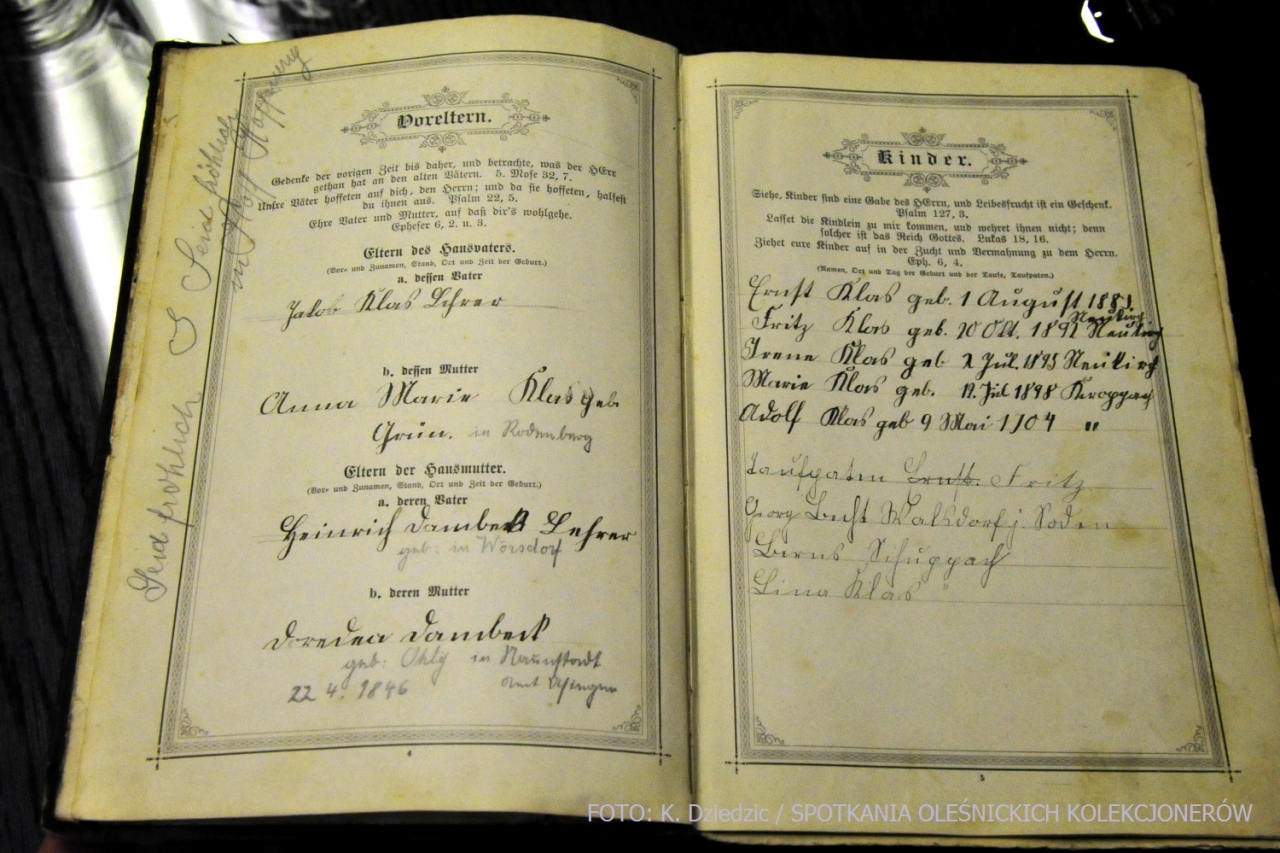 Seid fröhlich S Seid fröhlich
in Hoffnung
Voreltern.
Gedenke der vorigen Zeit bis daher, und betrachte, was der HErr
gethan hat an den alten Vätern. 5. Mose 32, 7.
Unsre Väter hoffeten auf dich, den Herrn; und da sie hoffeten, halfest
du ihnen aus. Psalm 22, 5.
Ehre Vater und Mutter, auf daß dir's wohlgehe.
Epheser 6, 2. u. 3.
Eltern des Hausvaters.
(Vor- und Zunamen, Stand, Ort und Zeit der Geburt.)
a. dessen Vater
Jakob Klas Lehrer
b. dessen Mutter
Anna Marie Klas geb.
Grün. in Rodenberg
Eltern der Hausmutter.
(Vor- und Zunamen, Stand, Ort und Zeit der Geburt.)
a. deren Vater
Heinrich Dambeck Lehrer
geb: in Wörsdorf
b. deren Mutter
Doredea Dambeck
geb: Ohly in Naunstadt
22 4. 1846 Amt Usingen
4
Kinder.
Siehe, Kinder sind eine Gabe des HErrn, und Leibesfrucht ist ein Geschenk.
Psalm 127, 3.
Lasset die Kindlein zu mir kommen, und wehret ihnen nicht; denn
solcher ist das Reich Gottes. Lukas 18, 16.
Ziehet eure Kinder auf in der Zucht und Vermahnung zu dem Herrn.
Eph. 6, 4.
(Namen, Ort und Tag der Geburt und der Taufe, Taufpaten.)
Ernst Klas geb. 1 August
Neukirch
Fritz Klas geb. 20 Okt. 1892 Neukirch
Irene Klas geb 2 Jul. 1895 Neukirch
Marie Klas geb. Jul 1898 Kroppach
Adolf Klas geb 9 Mai 1904 "
Taufpaten Ernst. Fritz
Georg Walsdorf j. Soden
Schuppach
Lina Klas "
5
FOTO: K. Dziedzic / SPOTKANIA OLEŚNICKICH KOLEKCJONERÓW